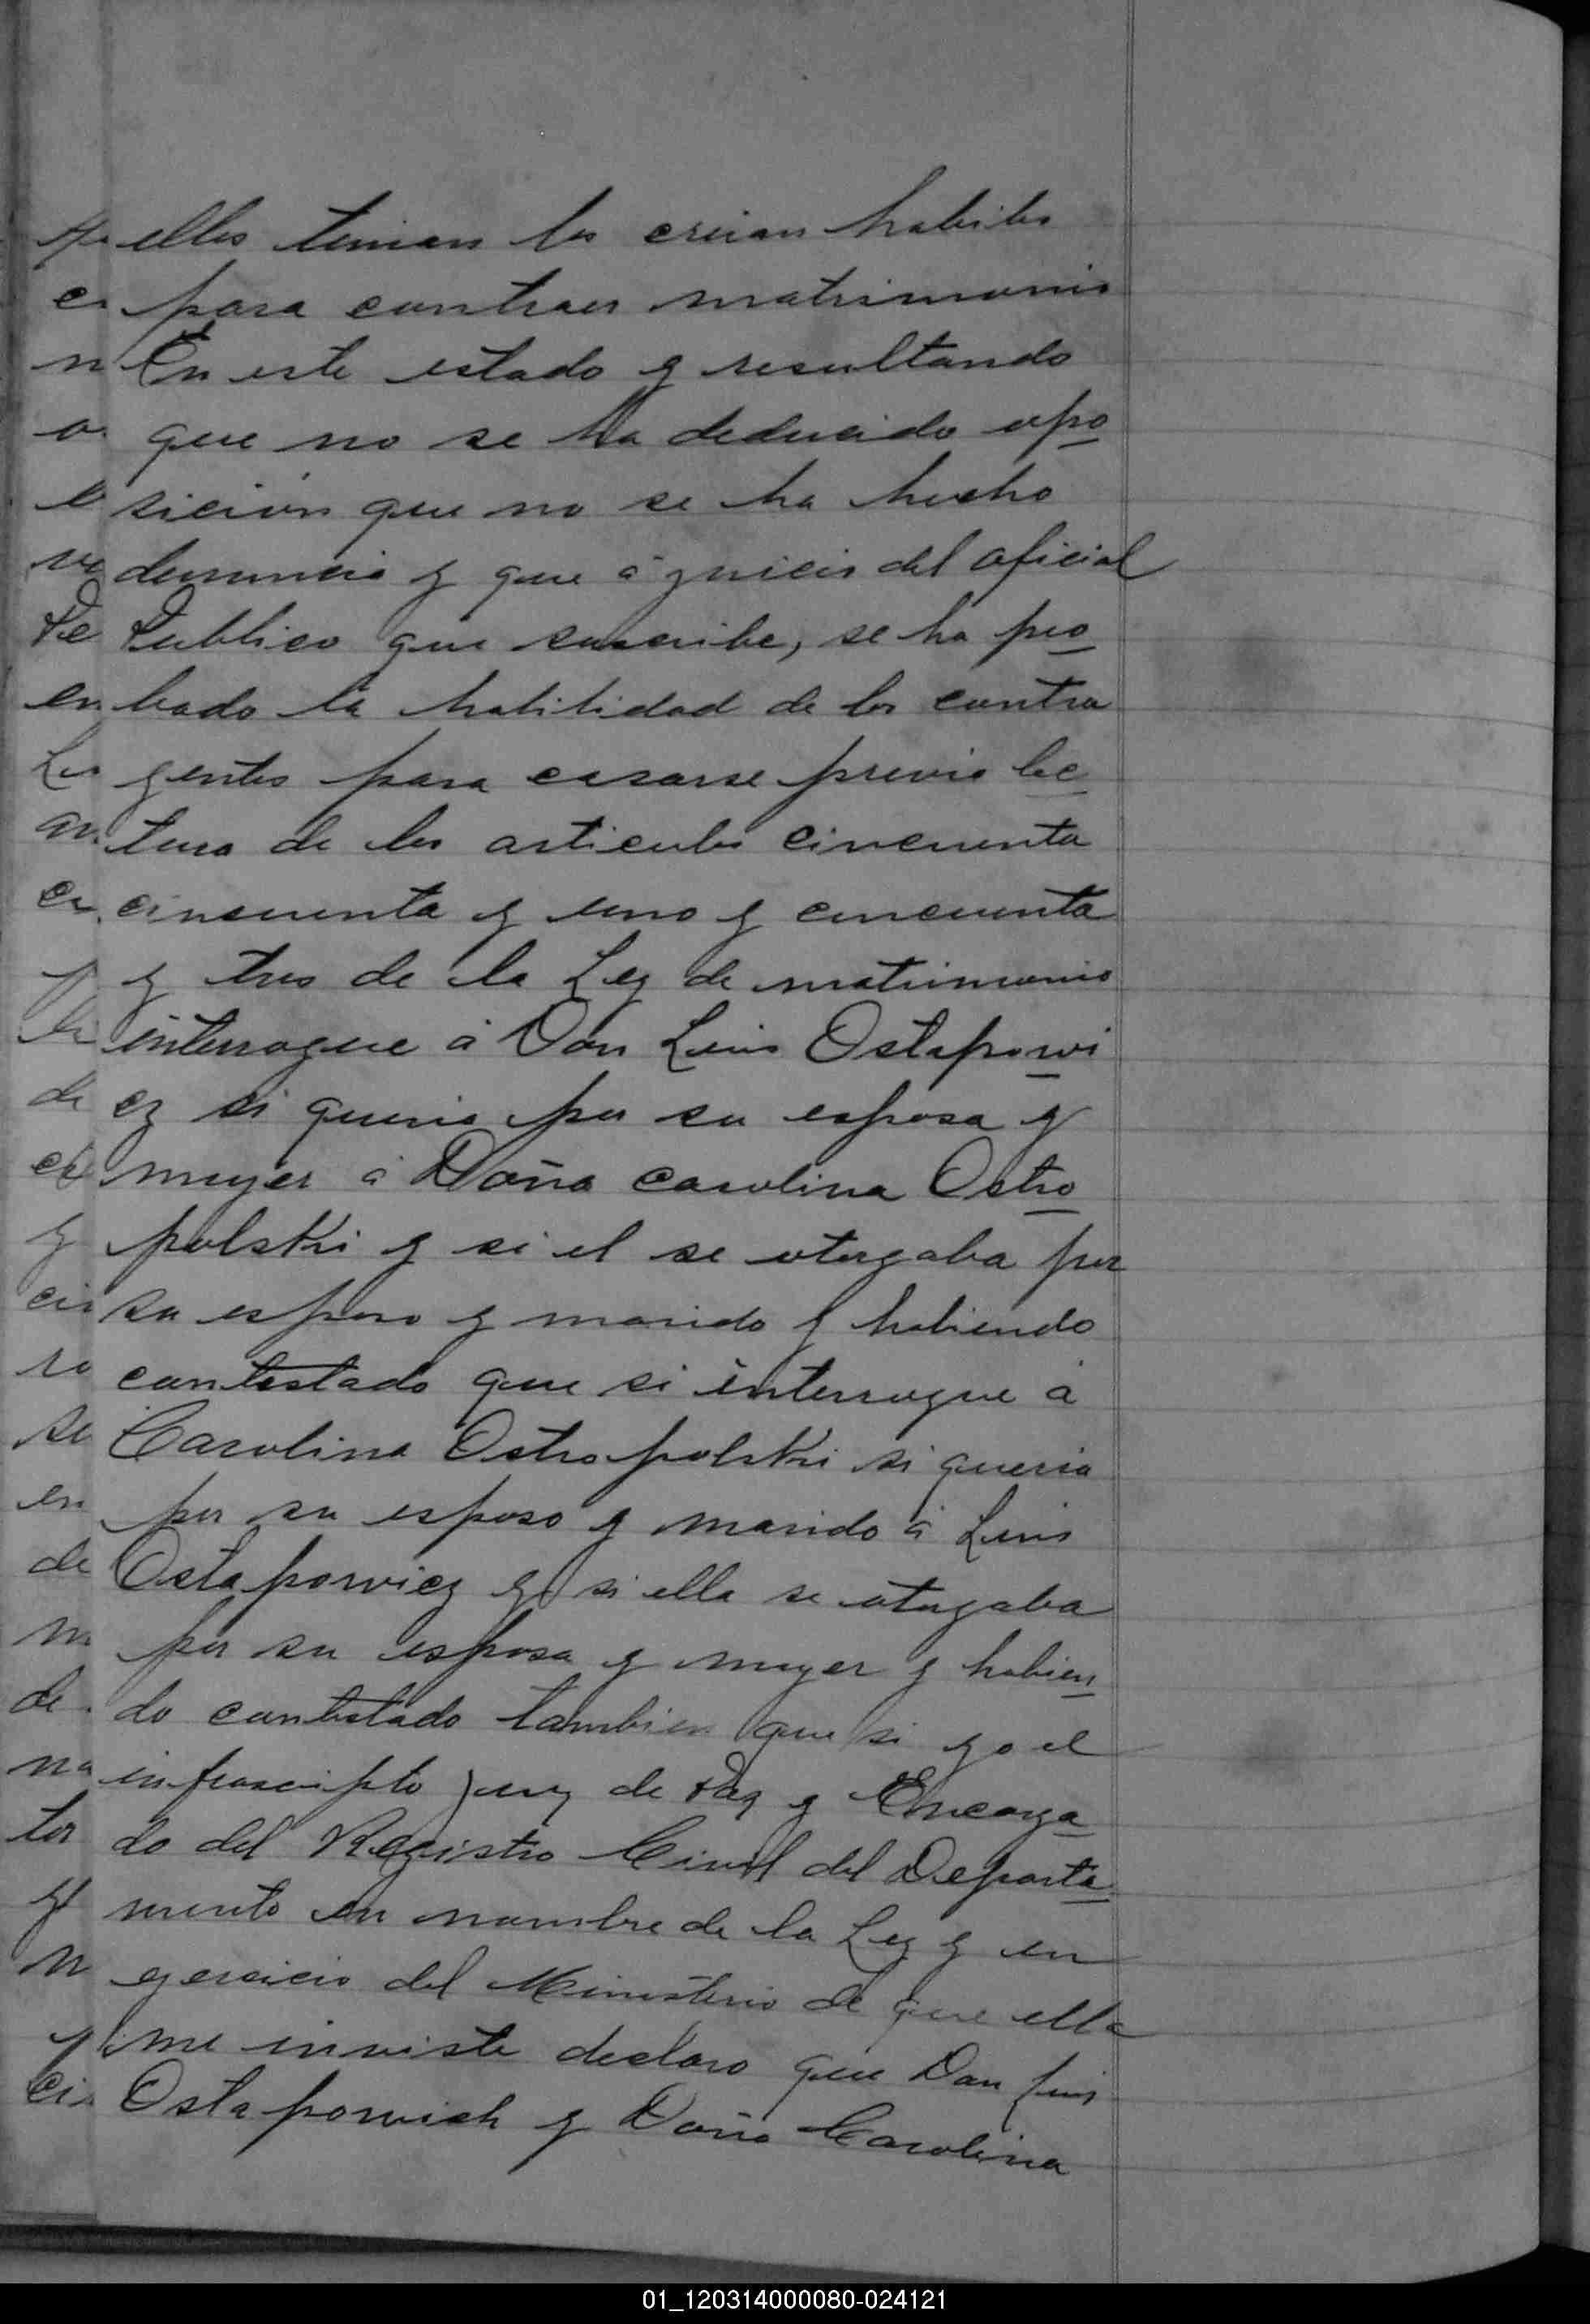 ellos tenian los creian habiles
para contraer matrimonio
En este estado y resultando
que no se ha deducido opo
sicion que no se ha hecho
denuncia y que á juicio del oficial
Publico que suscribe, se ha pro
bado la habilidad de los contra
yentes para casarse previa lec
tura de los articulos cincuenta
cincuenta y uno y cincuenta
y tres de la Ley de matrimonio
interrogue á Don Luis Ostapowi
cz si queria por su esposa y
muger á Doña Carolina Ostro
polski y si el se otorgaba por
su esposo y marido y habiendo
contestado que si interrogue á
Carolina Ostropolski si queria
por su esposo y marido á Luis
Ostapowicz y si ella se otorgaba
por su esposa y muger y habien
do contestado tambien que si yo el
infrascripto juez de Paz y Encarga
do del Registro Civil del Departa
mento en nombre de la Ley y en
ejercicio del Ministerio de que ella
me inviste declaro que Don Luis
Ostapowich y Doña Carolina
01_120314000080-024121